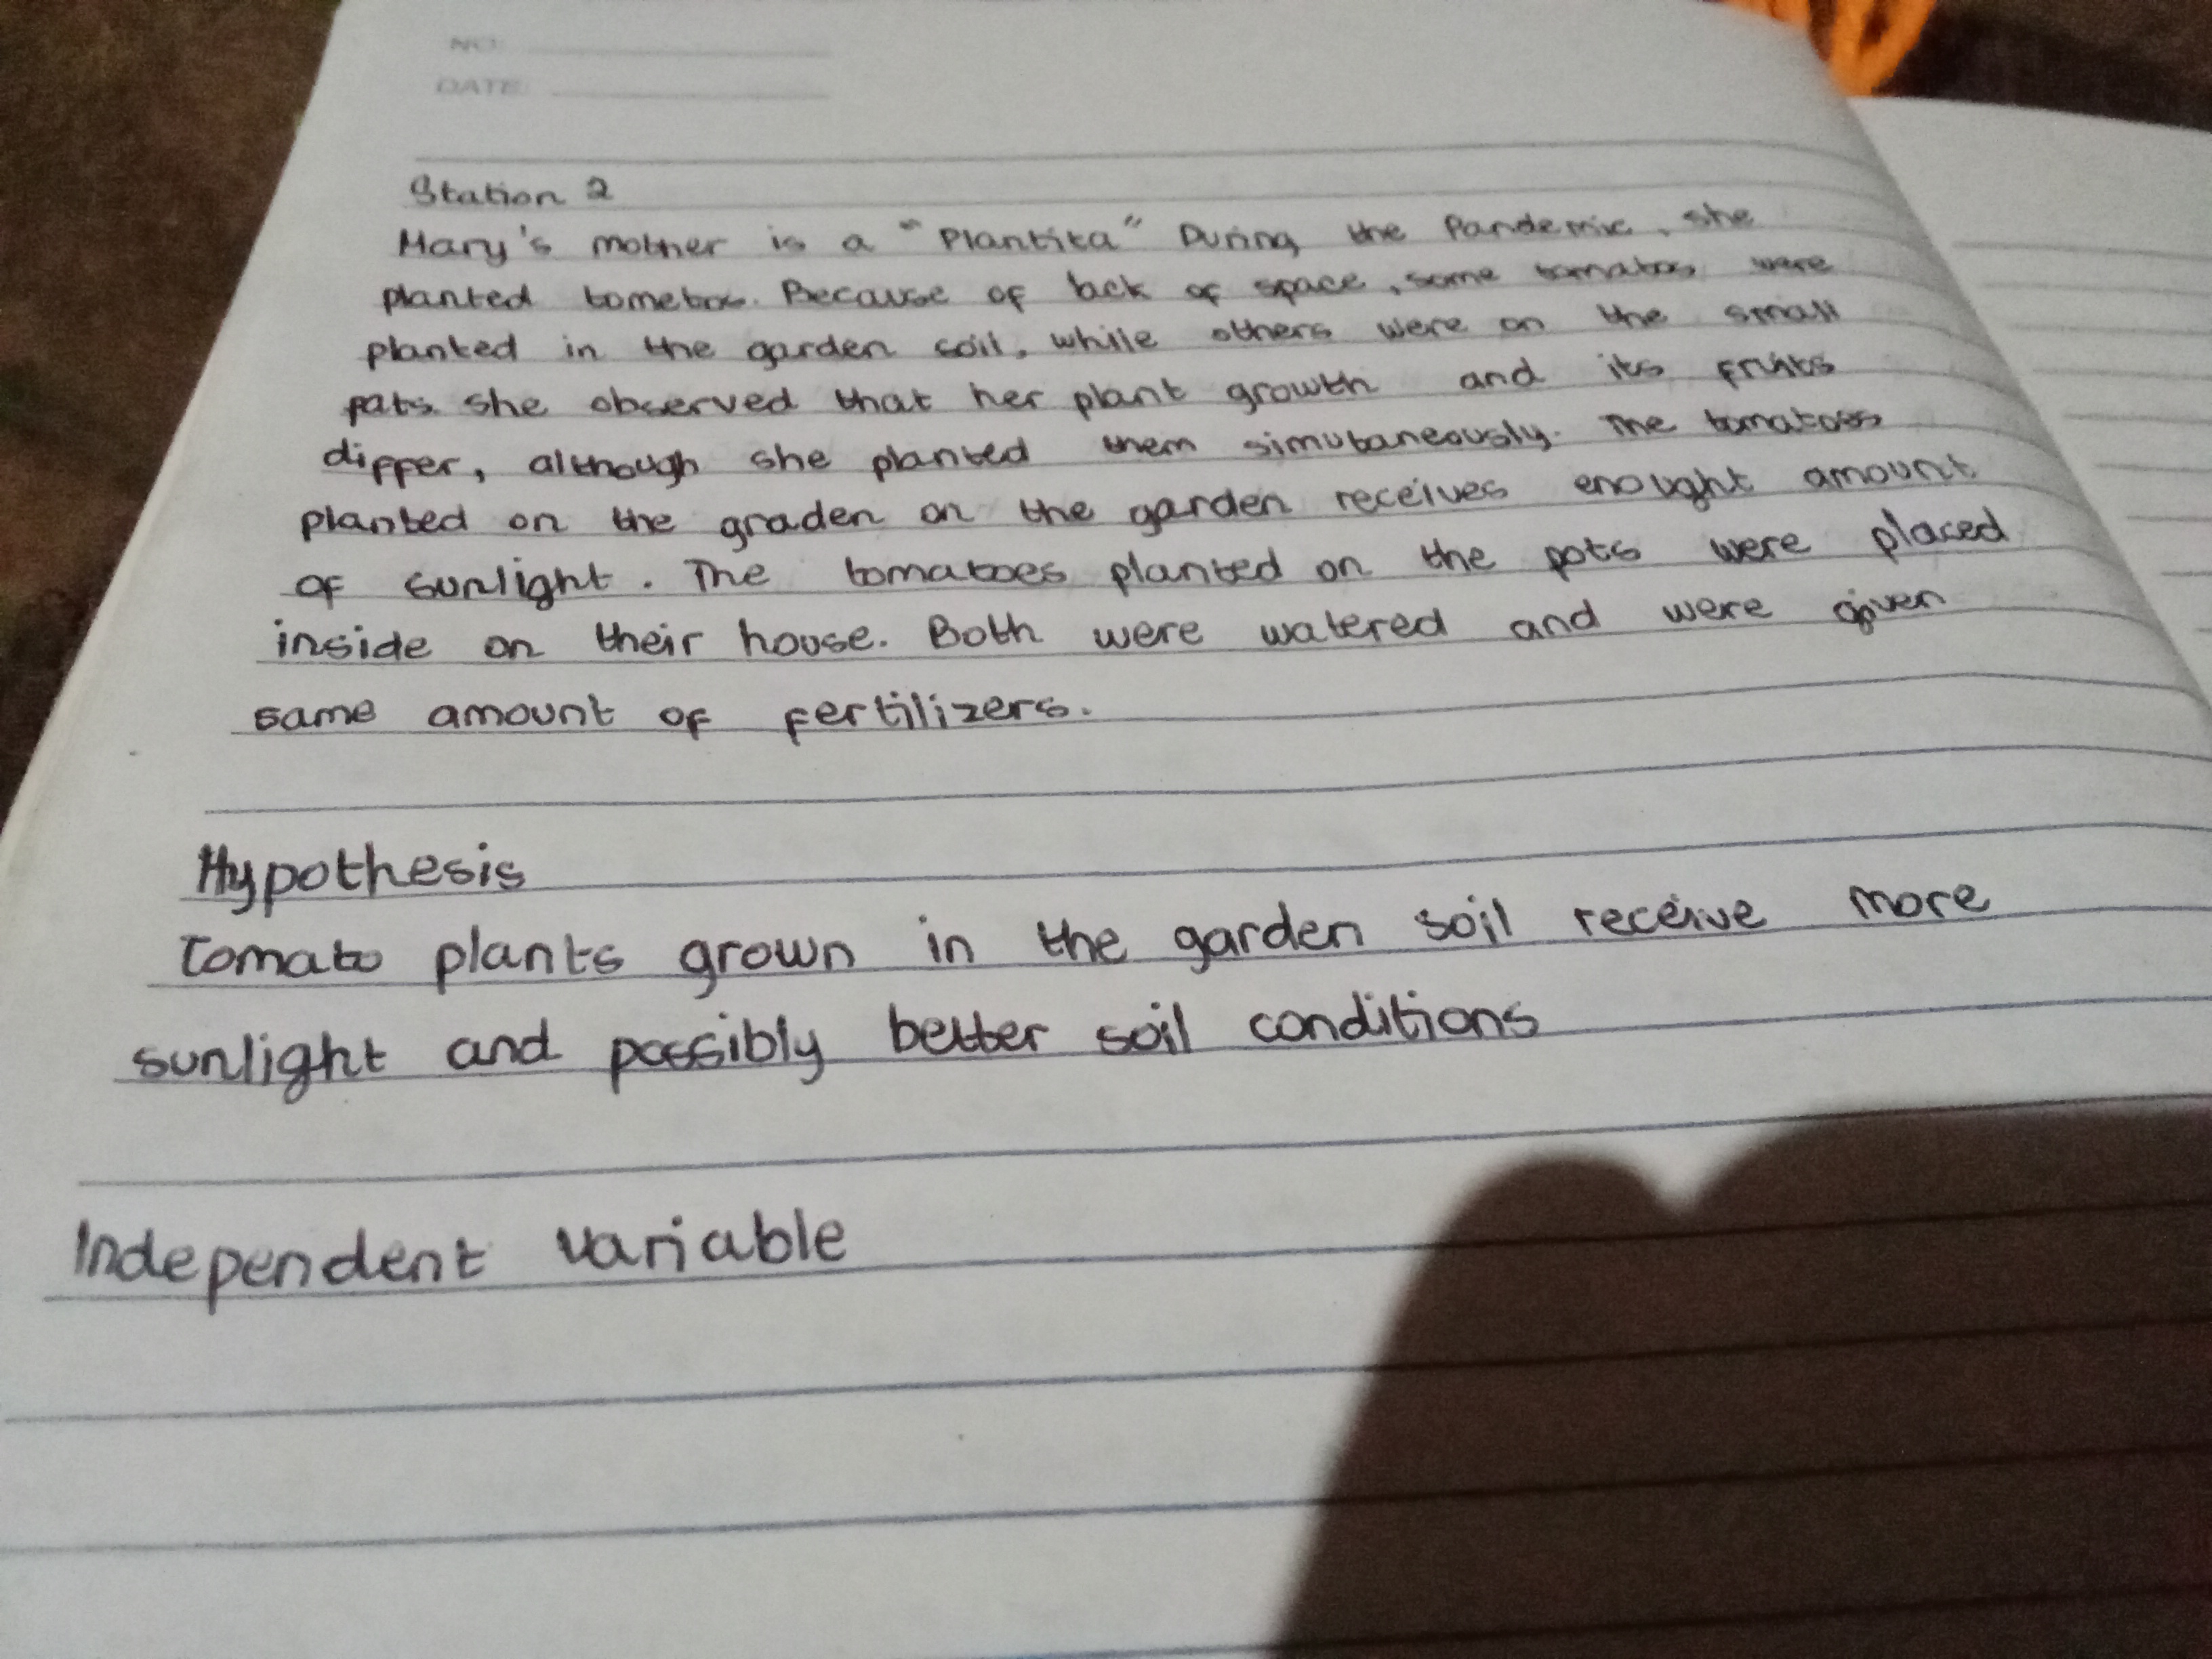 NO:
DATE:
Station 2
Mary's mother is a "Plantita" During the Pandemic, she
planted tometos. Because of lack of space, some tomatos were
planted in the garden soil, while others were on the small
pats. she observed that her plant growth and its fruits
dipper, although she planted them simutaneously. The tomatoes
planted on the graden on the garden receives enought amount
of sunlight. The tomatoes planted on the pots were placed
inside on their house. Both were watered and were given
same amount of fertilizers.
Hypothesis
Tomato plants grown in the garden soil receive more
sunlight and possibly better soil conditions
Independent variable